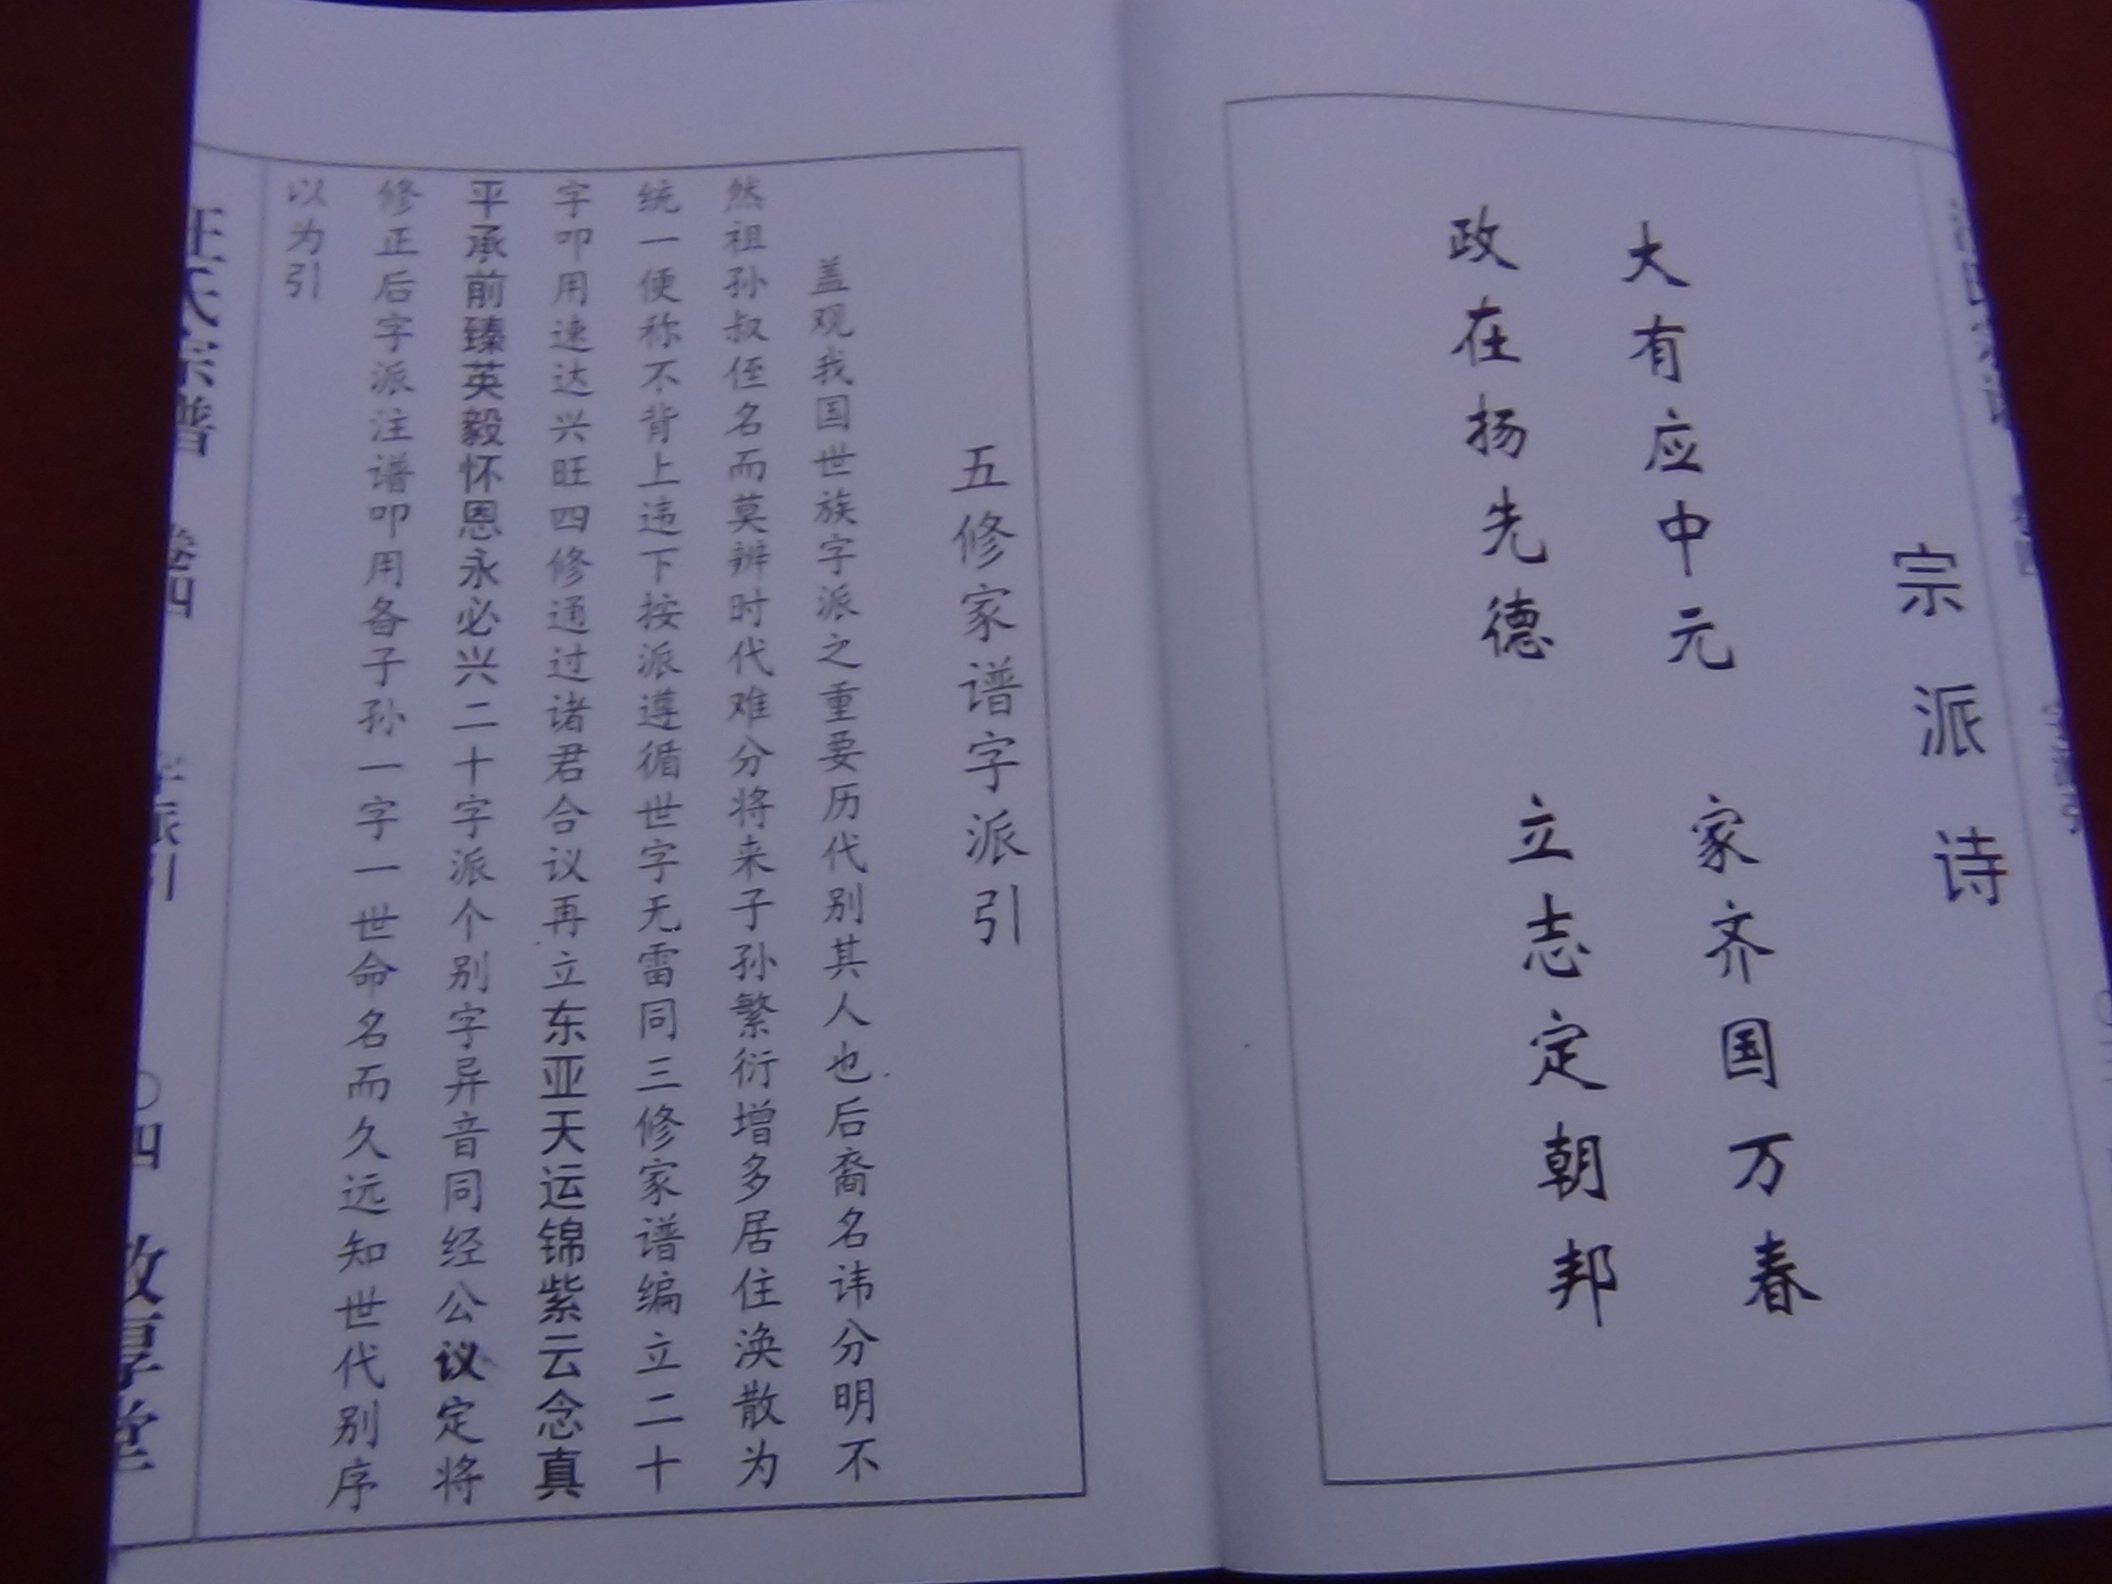 宗派诗
大有应中元 家齐国万春
政在扬先德 立志定朝邦
五修家谱字派引
盖观我国世族字派之重要历代别其人也后裔名讳分明不
然祖孙叔侄名而莫辨时代难分将来子孙繁衍增多居住涣散为
统一便称不背上违下按派遵循世字无雷同三修家谱编立二十
字叩用速达兴旺四修通过诸君合议再立东亚天运锦紫云念真
平承前臻英毅怀恩永必兴二十字派个别字异音同经公议定将
修正后字派注谱叩用备子孙一字一世命名而久远知世代别序
以为引
汪氏宗谱 卷四 字派引 〇四 敦厚堂